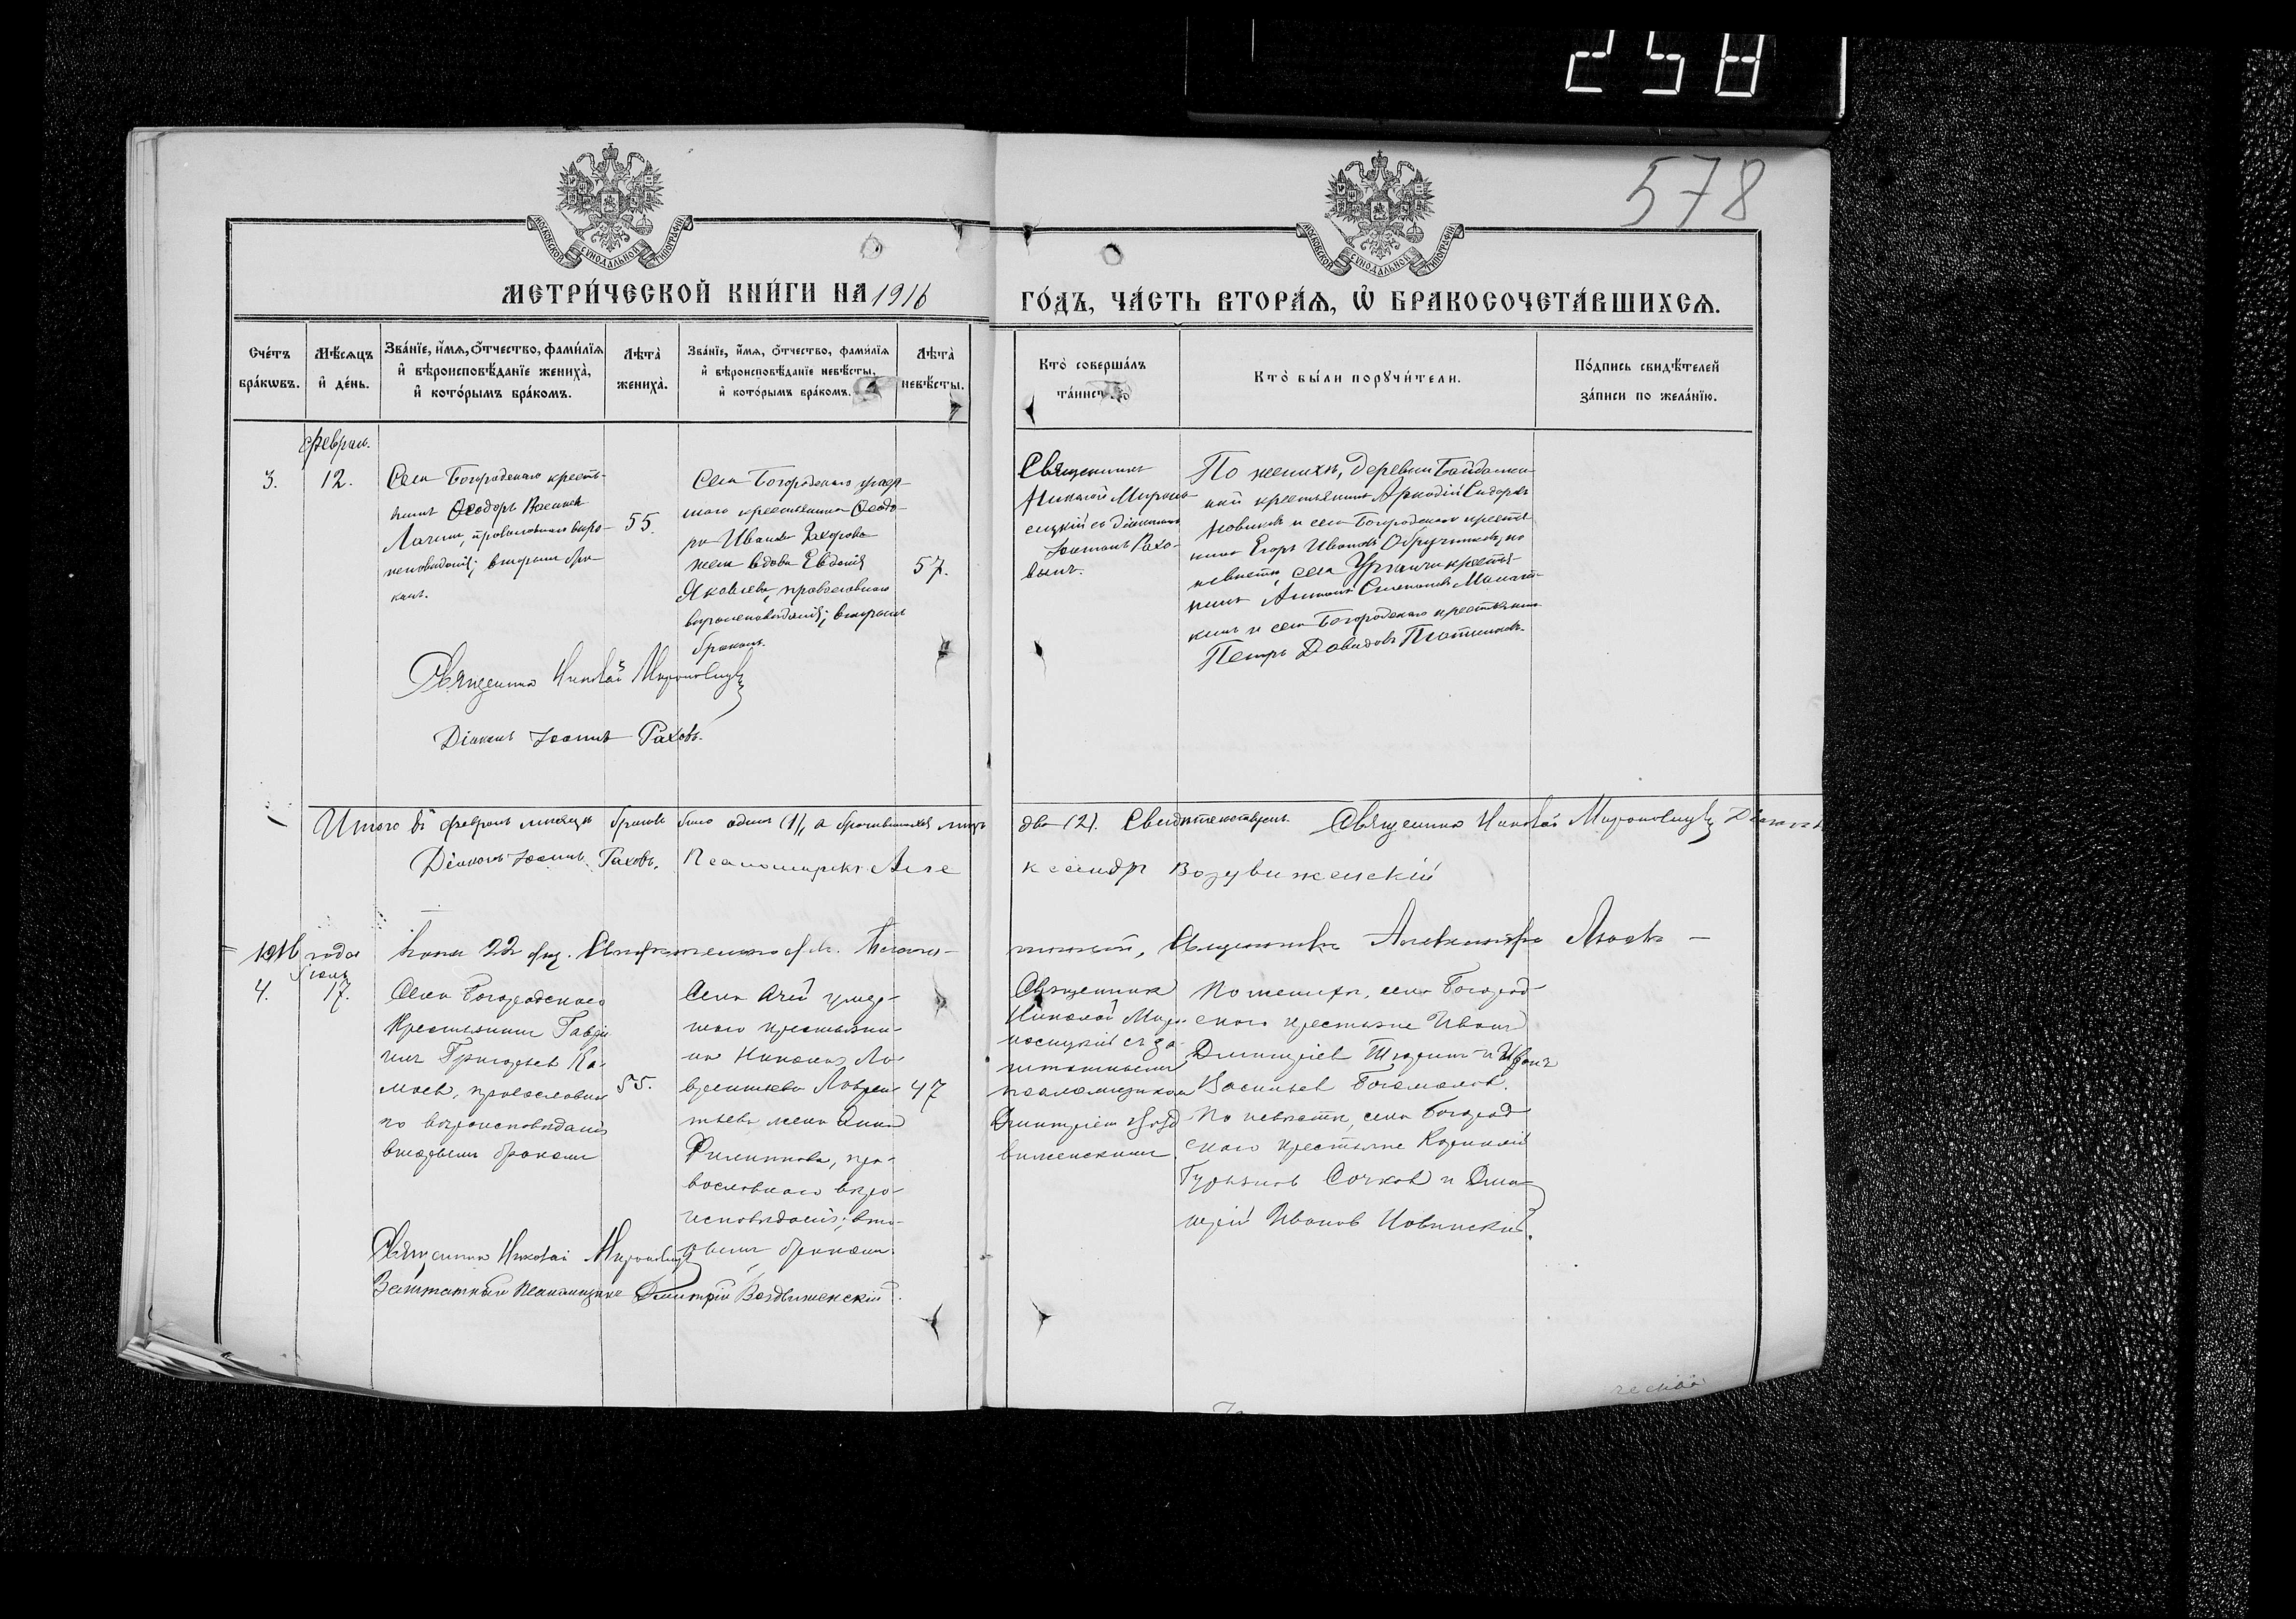 258
578
МОСКОВСКОЙ СУНОДАЛЬНОЙ ТИПОГРАФІИ
МОСКОВСКОЙ СУНОДАЛЬНОЙ ТИПОГРАФІИ
МЕТРИ́ЧЕСКОЙ КНИ́ГИ НА 1916
ГО́ДЪ, ЧА́СТЬ ВТОРА́Ѧ, Ѡ҆ БРАКОСОЧЕТА́ВШИХСѦ.
Сче́тъ
бра́кѡвъ.
Мѣ́сѧцъ
и҆ де́нь.
Зва́нїе, и҆́мѧ, ѻ҆́тчество, фами́лїѧ
и҆ вѣроисповѣ́данїе жениха̀,
и҆ кото́рымъ бра́комъ.
Лѣта̀
жениха̀.
Зва́нїе, и҆́мѧ, ѻ҆́тчество, фами́лїѧ
и҆ вѣроисповѣ́данїе невѣ́сты,
и҆ кото́рымъ бра́комъ.
Лѣта̀
невѣ́сты.
Кто̀ соверша́лъ
та́инст
Кто̀ бы́ли порꙋчи́тели.
По́дпись свидѣ́телей
за́писи по жела́нїю.
Феврал.
3.
12.
Села Богородскаго кресть-
янинъ Ѳеодоръ
православнаго вѣро-
исповѣданія; вторымъ бра-
комъ.
55.
Села Богородскаго умер-
шаго крестьянина Ѳеодо-
ра Иванова Захарова
жена вдова Евдокія
Яковлева, православнаго
вѣроисповѣданія; вторымъ
бракомъ.
57.
Священникъ
Николай Мироно-
сицкій съ діакономъ
Іоанномъ Рахо-
вымъ.
По женихѣ, деревни
крестьянинъ Аркадій Сидоровъ
Новиковъ и села Богородскаго кресть-
янинъ Егоръ Ивановъ Обручниковъ, по
невѣстѣ, села кресть-
янинъ Степановъ
и села Богородскаго крестьянинъ
Петръ Давидовъ Плотниковъ.
Священникъ Николай Мироносицкій
Діаконъ Іоаннъ Раховъ.
Итого въ февралѣ мѣсяцѣ браковъ было одинъ (1), а брачившихся лицъ
два (2). Свидѣтельствуемъ. Священникъ Николай Мироносицкій Діаконъ
Діаконъ Іоаннъ Раховъ. Псаломщикъ Але
ксандръ Воздвиженскій
1916 года 22
Священникъ Александръ
Іюль
4.
17.
Села Богородскаго
Крестьянинъ Гаврі
илъ Григорьевъ Ка-
православна
го вѣроисповѣданія
вторымъ бракомъ
55.
Села Ачей умер-
шаго крестьяни-
на Ла-
врентьева Лаврен-
тьева жена Анна
Филиппова, пра-
вославнаго вѣро-
исповѣданія; вто-
рымъ бракомъ.
47
Священникъ
Николай Миро-
носицкій съ за-
штатнымъ
псаломщикомъ
Димитріемъ Возд
виженскимъ
По женихѣ, села Богород-
скаго крестьяне Иванъ
Димитріевъ Тюринъ и Иванъ
Васильевъ Богомоловъ.
По невѣстѣ, села Богород
скаго крестьяне Корнилій
Гурьяновъ Сочковъ и Дми-
трій Ивановъ Новинскій.
Священникъ Николай Мироносицкій
Заштатный Псаломщикъ Димитрій Воздвиженскій.